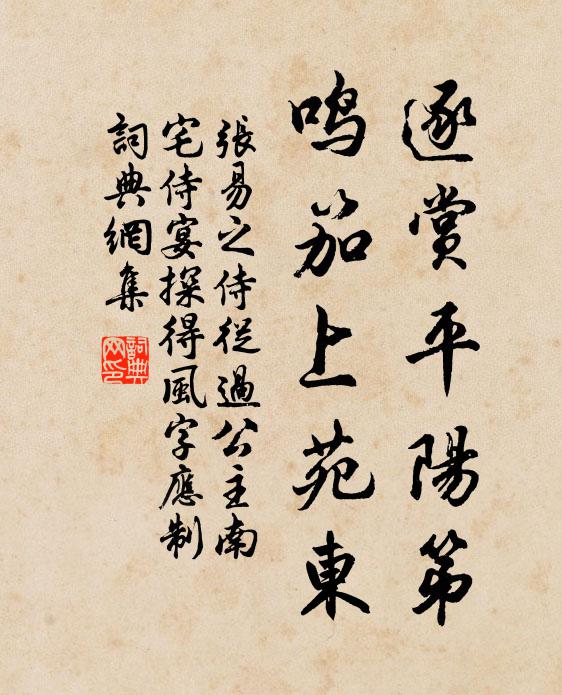 逐賞平陽第
鳴笳上苑東
張易之侍從過公主南
宅侍宴探得風字應制
詞典網集
詞典
网印